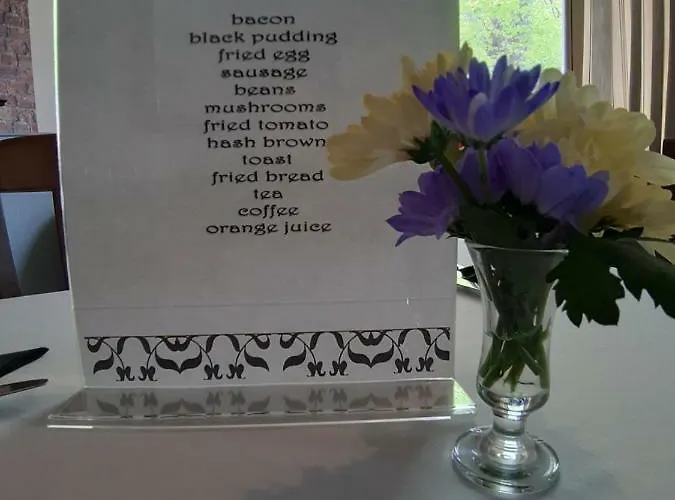 bacon
black pudding
fried egg
sausage
beans
mushrooms
fried tomato
hash brown
toast
fried bread
tea
coffee
orange juice